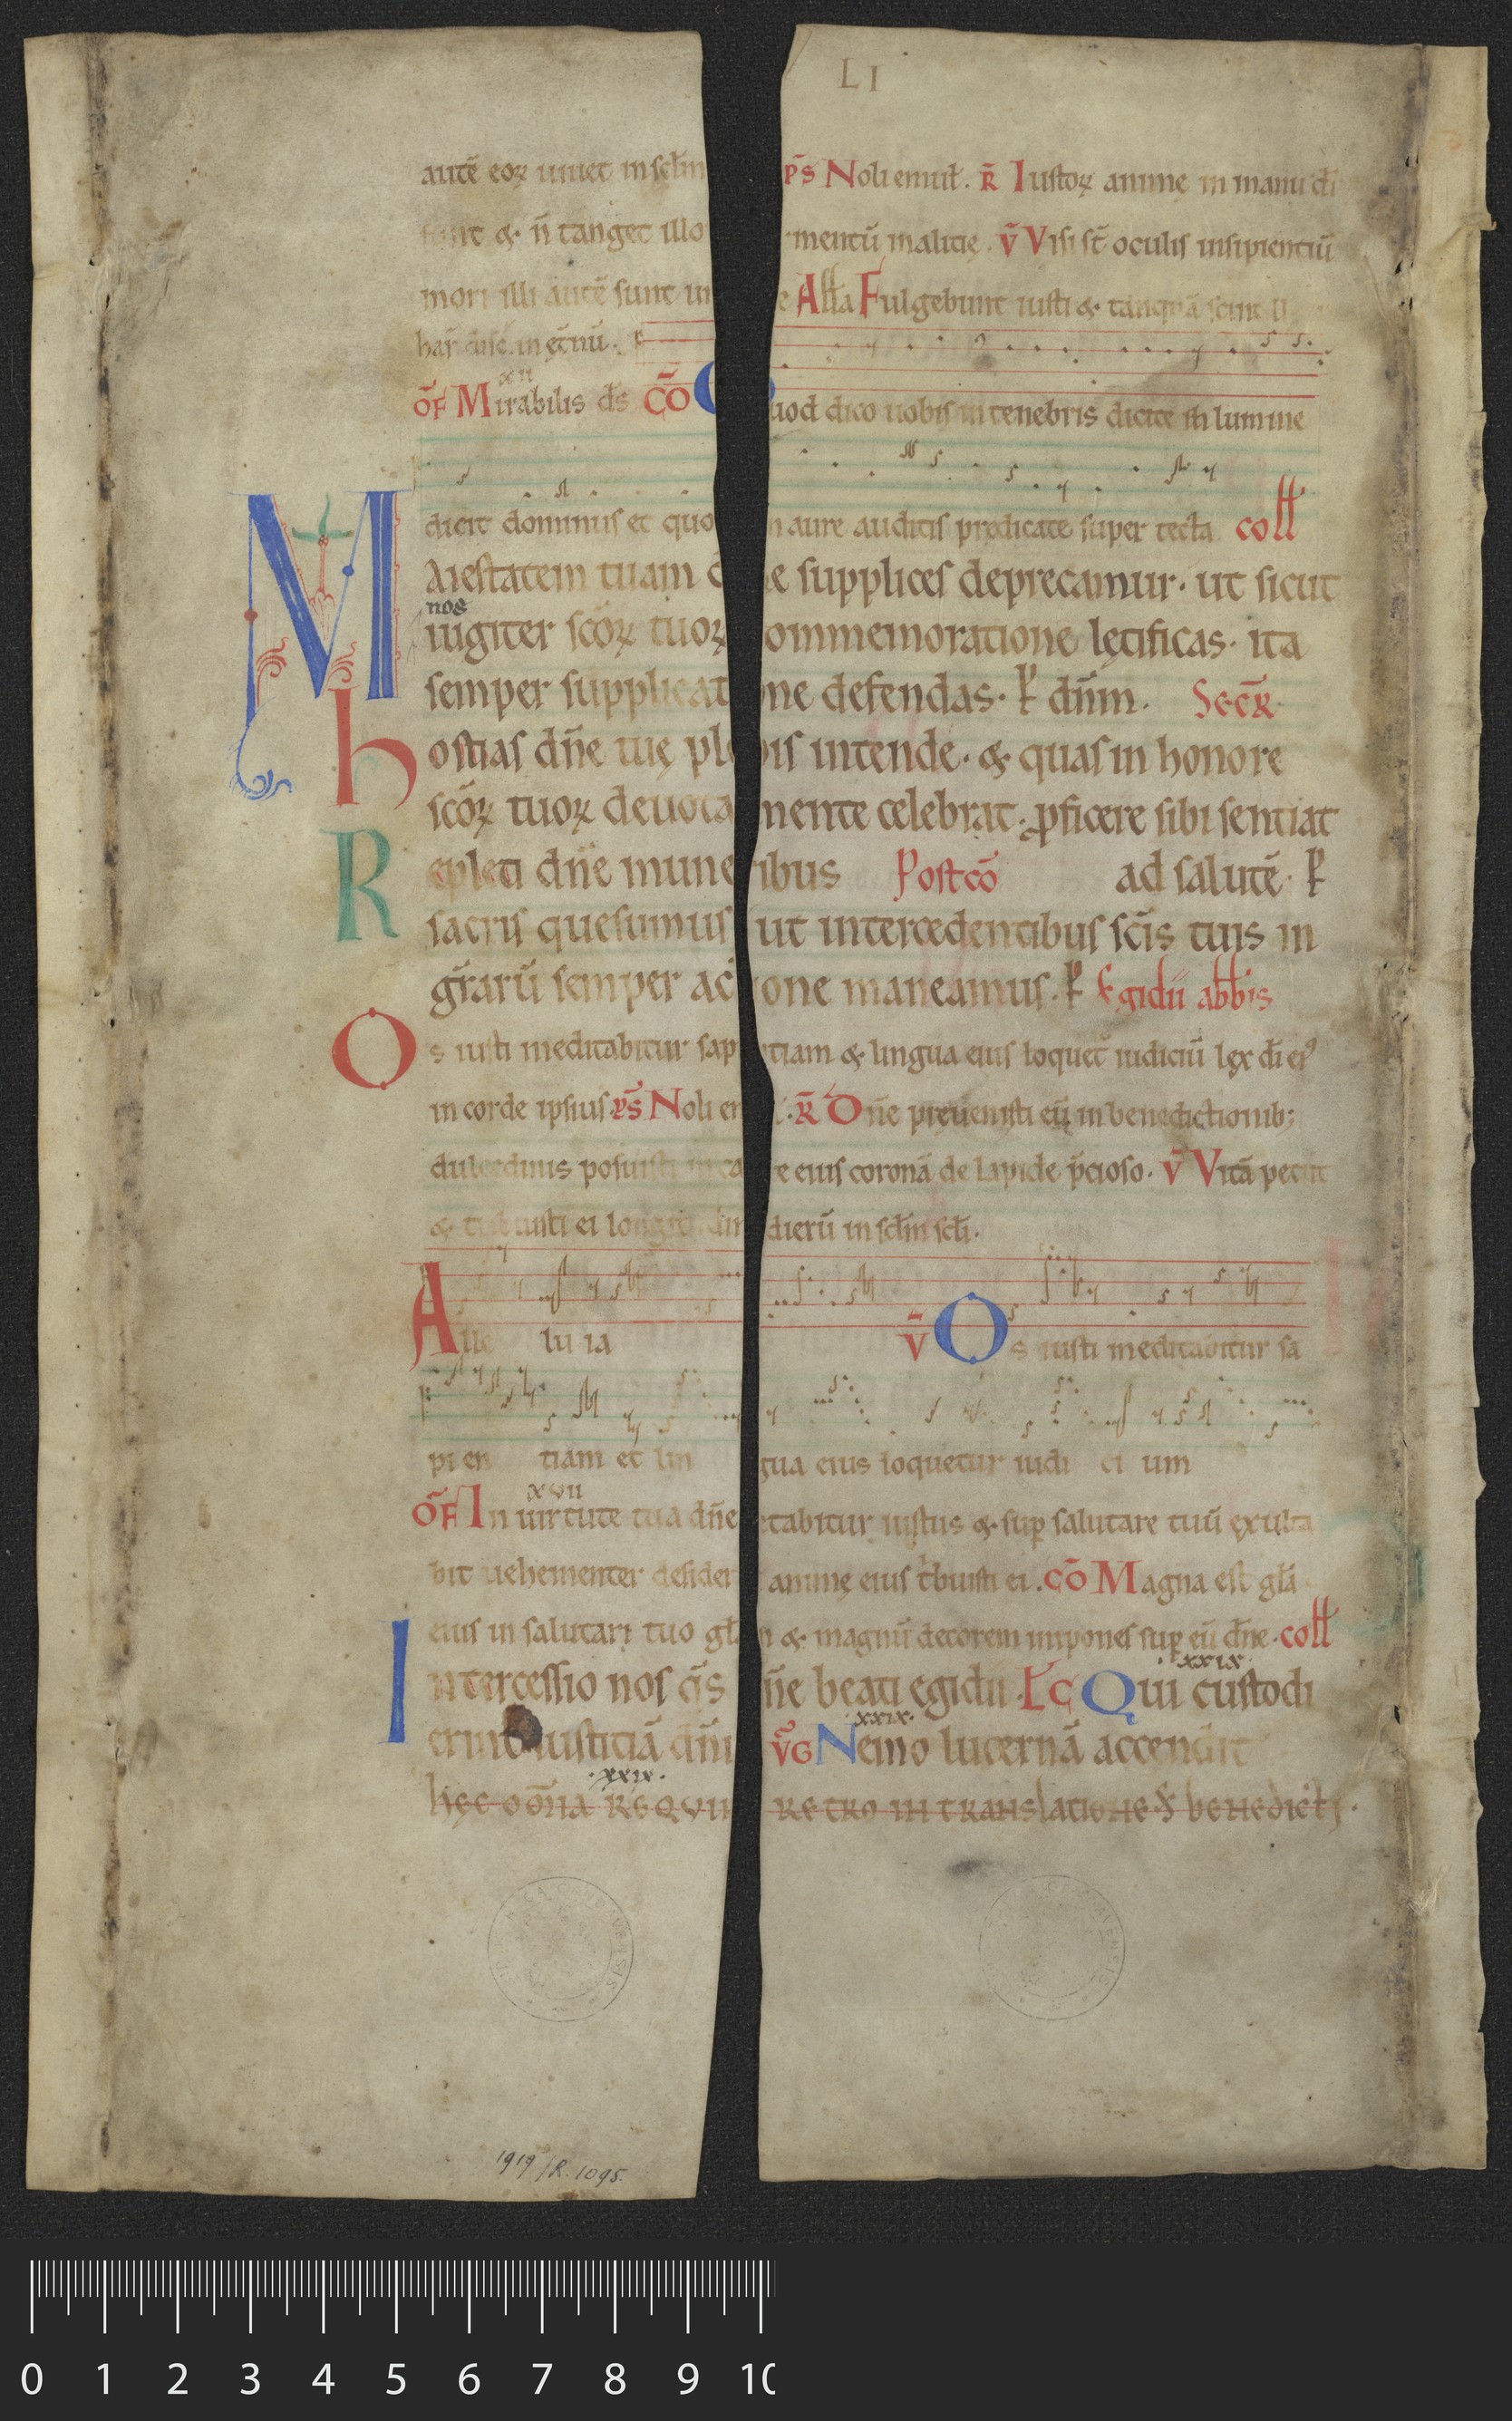 LI
autē eoꝝ uiuet in scł̄m p̄s Noli emuł. R̄ Iustoꝝ animę in manu dī
sunt & n̄ tanget illo mentū malitię. v̄ Visi st̄ oculis insipientiū
mori illi autē sunt in e Alła Fulgebunt iusti & tanquā scint
in ęt̄nū.
xvi
ōF Mirabilis ds̄ cō Quod dico uobis in tenebris dicite in lumine
dicit dominus et quo in aure auditis prędicate super tecta coll
Maiestatem tuam d̄ne supplices deprecamur. ut sicut
nos
iugiter scōꝝ tuoꝝ commemoratione lętificas. ita
semper supplicatione defendas. P dn̄m. Secr̄
hostias dn̄e tuę plebis intende. & quas in honore
scōꝝ tuoꝝ deuota mente celebrat. ꝓficere sibi sentiat
Repleti dn̄e muneribus Postcō ad salutē. P
sacris quesumus ut intercedentibus sc̄is tuis in
gr̄arū semper actione maneamus. P Egidii abb̄is
Os iusti meditabitur sapientiam & lingua eius loquet̄ iudiciū lęx dī ei9
in corde ipsius p̄s Noli em . R̄ Dn̄e pręuenisti eū in benedictionib;
dulcedinis posuisti in ca e eius coronā de lapide p̄cioso. v̄ Vitā petiit
& tribuisti ei longitudin dierū in scł̄m scłi.
Alle lu ia v̄ Os iusti meditabitur sa
pi en tiam et lin gua eius loquetur iudi ci um
xvii
ōF In uirtute tua dn̄e etabitur iustus & sup̱ salutare tuū ęxulta
bit uehementer desider animę eius t̄buisti ei. cō Magna est gła
eius in salutari tuo gła & magnū decorem impones sup̱ eū dn̄e. coll
xxix
Intercessio nos q̄s dn̄e beati egidii. Łc Qui custodi
xxix
erint iusticiā dn̄i v̄G Nemo lucernā accendit
xxix
hęc om̄a Requi retro in translatione S benedicti.
1919/R. 1095.
0 1 2 3 4 5 6 7 8 9 10